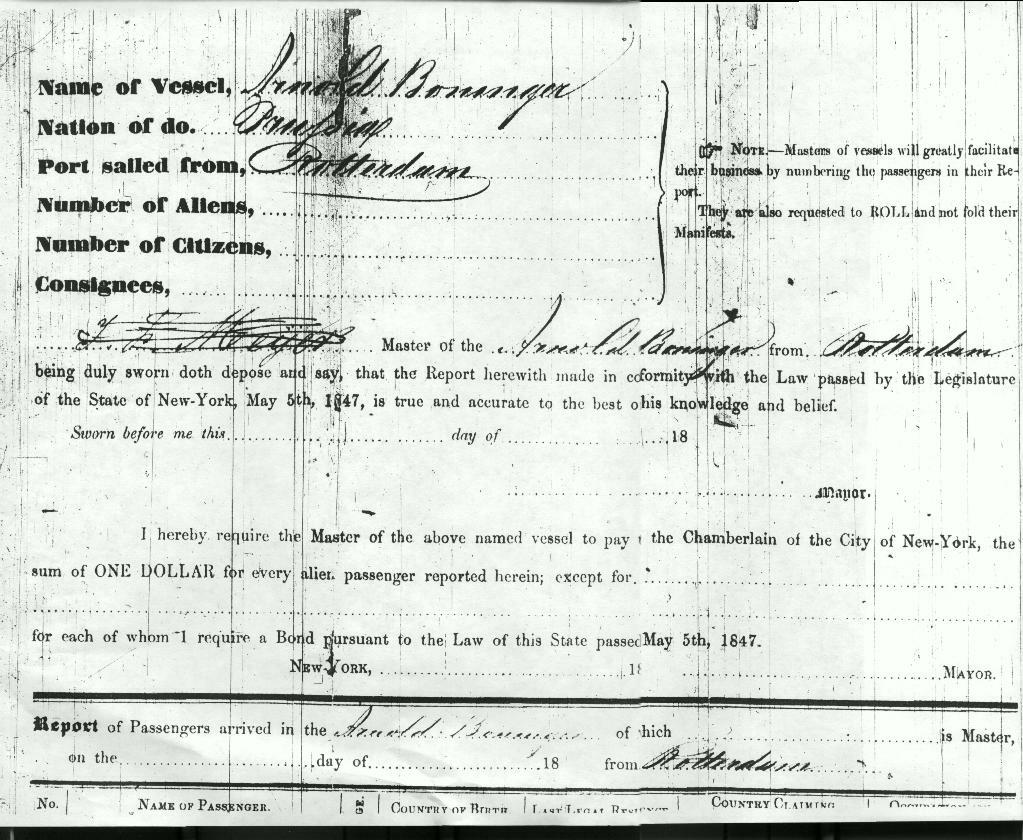 Name of Vessel, Arnold Boninger
Nation of do. Prussia
Port sailed from, Rotterdam
Number of Aliens,
Number of Citizens,
Consignees,
NOTE.—Masters of vessels will greatly facilitate
their business by numbering the passengers in their Re-
port.
They are also requested to ROLL and not fold their
Manifests.
Master of the Arnold Boninger from Rotterdam
being duly sworn doth depose and say, that the Report herewith made in coformity with the Law passed by the Legislature
of the State of New-York, May 5th, 1847, is true and accurate to the best o his knowledge and belief.
Sworn before me this day of 18
Mayor.
I hereby require the Master of the above named vessel to pay the Chamberlain of the City of New-York, the
sum of ONE DOLLAR for every alien passenger reported herein; except for
for each of whom I require a Bond pursuant to the Law of this State passed May 5th, 1847.
NEW-YORK, 18 MAYOR.
Report of Passengers arrived in the Arnold Boninger of hich is Master,
on the day of 18 from Rotterdam
No. NAME OF PASSENGER. GE. COUNTRY OF BIRTH LAST LEGAL RESIDENCE COUNTRY CLAIMING